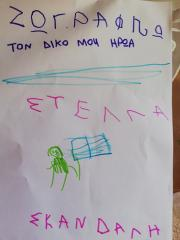 ΖΩΓΡΑΦΙΖΩ
ΤΟΝ ΔΙΚΟ ΜΟΥ ΗΡΩΑ
ΣΤΕΛΛΑ
ΣΚΑΝΔΑΛΗ